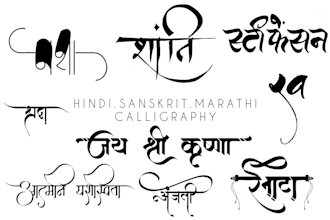 यशा
शांति
स्टीफेंसन
श्रद्धा
HINDI,SANSKRIT,MARATHI
CALLIGRAPHY
रव
जय श्री कृष्णा
आत्मान यशस्विता
अंजली
रेनाटा